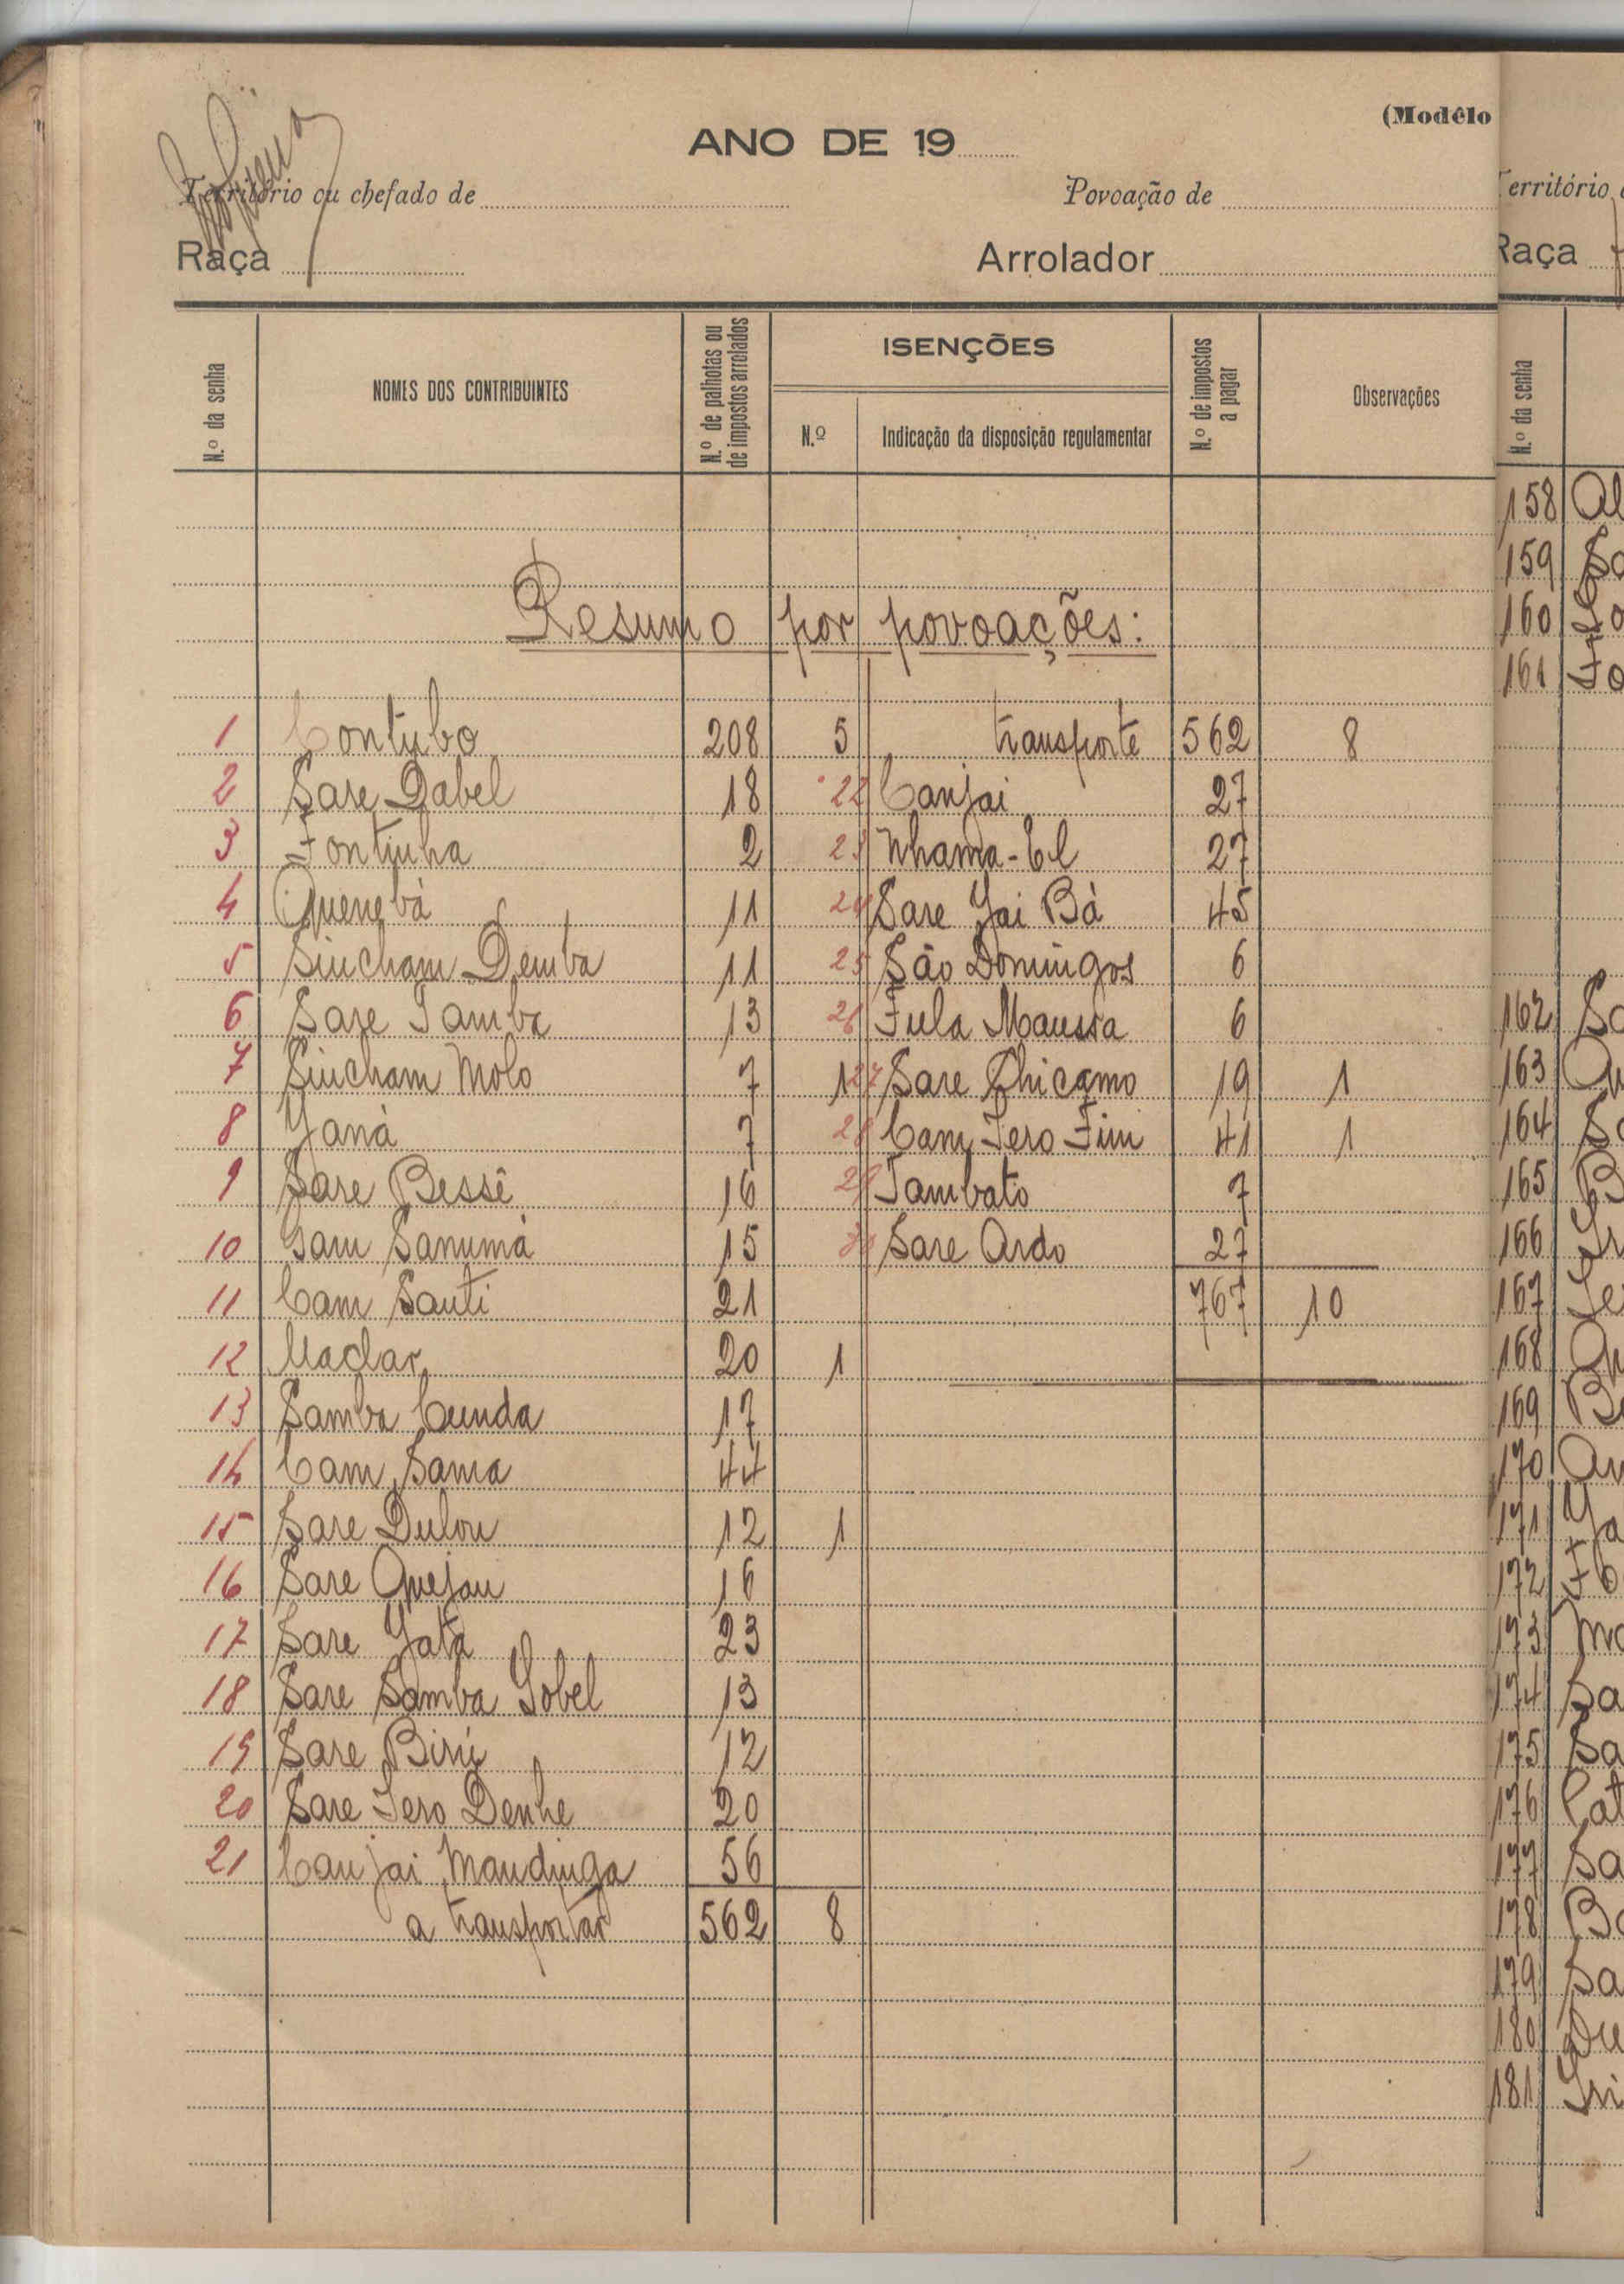 (Modêlo
ANO DE 19
Território ou chefado de
Povoação de
Raça
Arrolador
N.º da senha
NOMES DOS CONTRIBUINTES
N.º de palhotas ou de impostos arrolados
ISENÇÕES
N.º
Indicação da disposição regulamentar
N.º de impostos a pagar
Observações
Resumo por povoações:
1 Contubo 208 5
2 Sare Dabel 18
3 Fontinha 2
4 Quenebà 11
5 Sincham Demba 11
6 Sare Tamba 13
7 Sincham Molo 7 1
8 Yanà 7
9 Sare Bessê 16
10 Gam Sanumà 15
11 Cam Santi 21
12 Madar 20 1
13 Samba Cunda 17
14 Cam Sama 44
15 Sare Dulou 12 1
16 Sare Quejau 16
17 Sare Yatà 23
18 Sare Samba Gobel 13
19 Sare Birú 12
20 Sare Iero Denhe 20
21 Canjai Mandinga 56
a transportar 562 8
transporte 562 8
22 Canjai 27
23 Nhama-El 27
24 Sare Yai Bà 45
25 São Domingos 6
26 Fula Maussa 6
27 Sare Chicamo 19 1
28 Cam Iero Fim 41 1
29 Tambato 7
30 Sare Ardo 27
767 10
Território
Raça
N.º da senha
158 Al
159 Sa
160
161 Fo
162 Sa
163 Qu
164 Sa
165 B
166 Ir
167 Ie
168 Qu
169 Be
170 An
171 Ya
172
173 Ma
174 Sa
175 Sa
176 Cat
177 Sa
178 Ba
179 Sa
180 Du
181